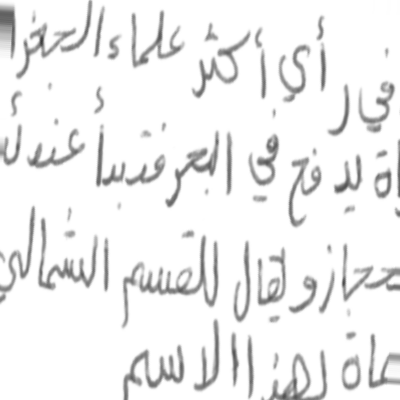 في رأي أكثر علماء الجغرا
اة ليد فح في البحر فتبدأ عند أ
حجاز ويقال للقسم الشمالي
ماة لهذا الاسم